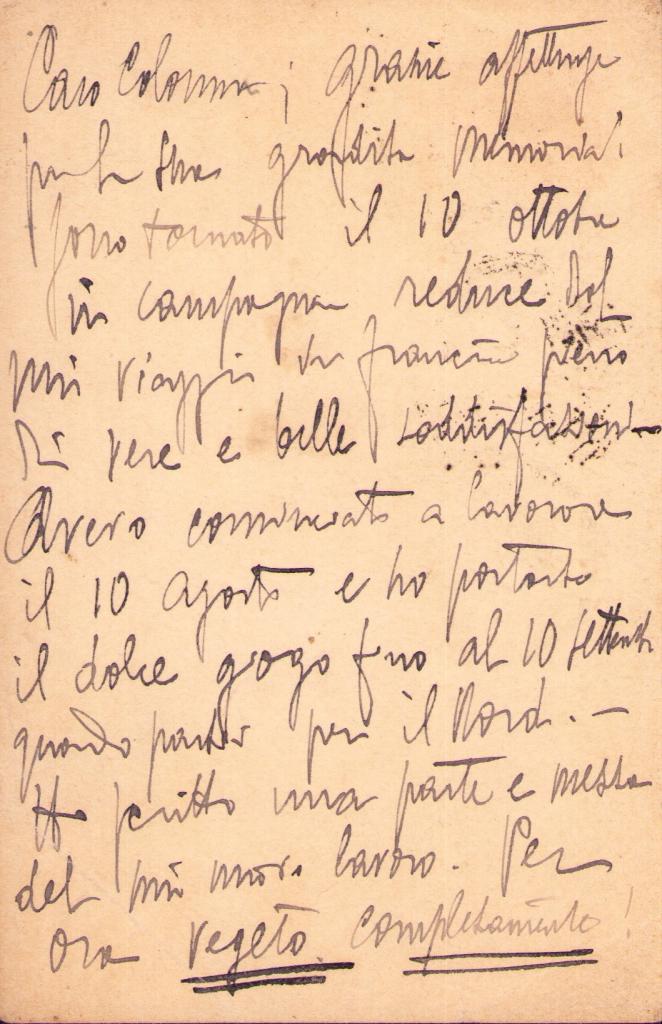 Caro Colonna, grazie affettuose
per la Sua gradita memoria!
Sono tornato il 10 ottobre
in campagna reduce dal
mio viaggio in francia pieno
di vere e belle soddisfazioni—
Avevo cominciato a lavorare
il 10 agosto e ho portato
il dolce giogo fino al 10 settembre
quando partii per il Nord.—
Ho scritto una parte e mezza
del mio nuovo lavoro. Per
ora vegeto completamente!